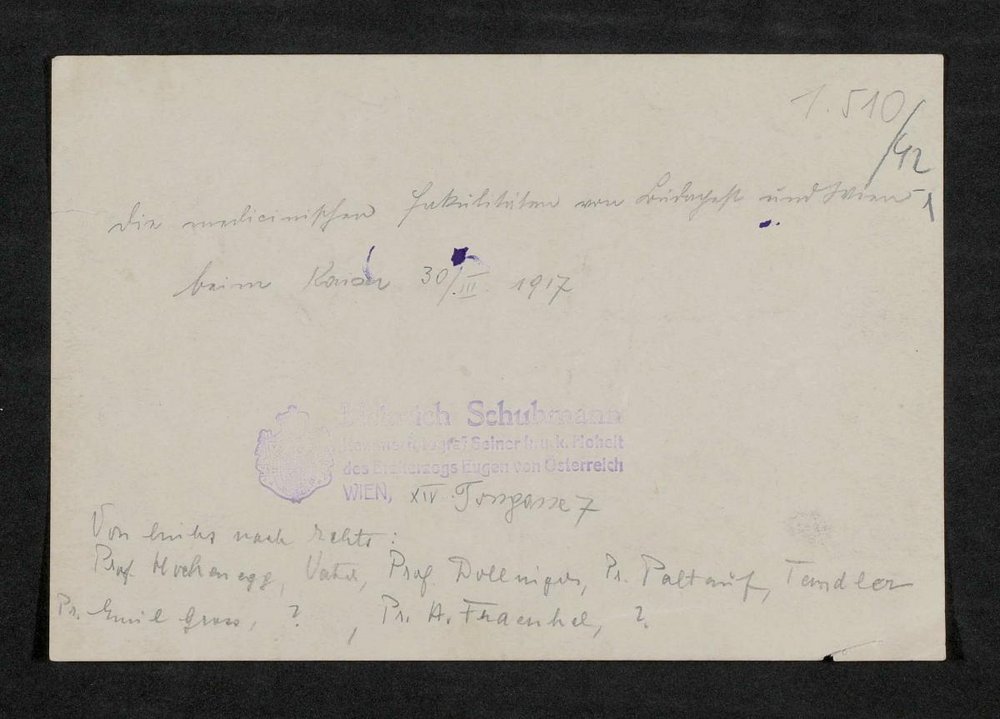 1.510/42
die medicinischen Fakultäten von Budapest und Wien
beim Kaiser 30/III. 1917
Heinrich Schuhmann
Kammerfotograf Seiner k. u. k. Hoheit
des Erzherzogs Eugen von Österreich
WIEN, XIV
Von links nach rechts:
Prof. Hochenegg, Vater, Prof. Dollinger, Pr. Paltauf, Tandler
Pr. Emil Gross, ?, Pr. A. Fraenkel, ?